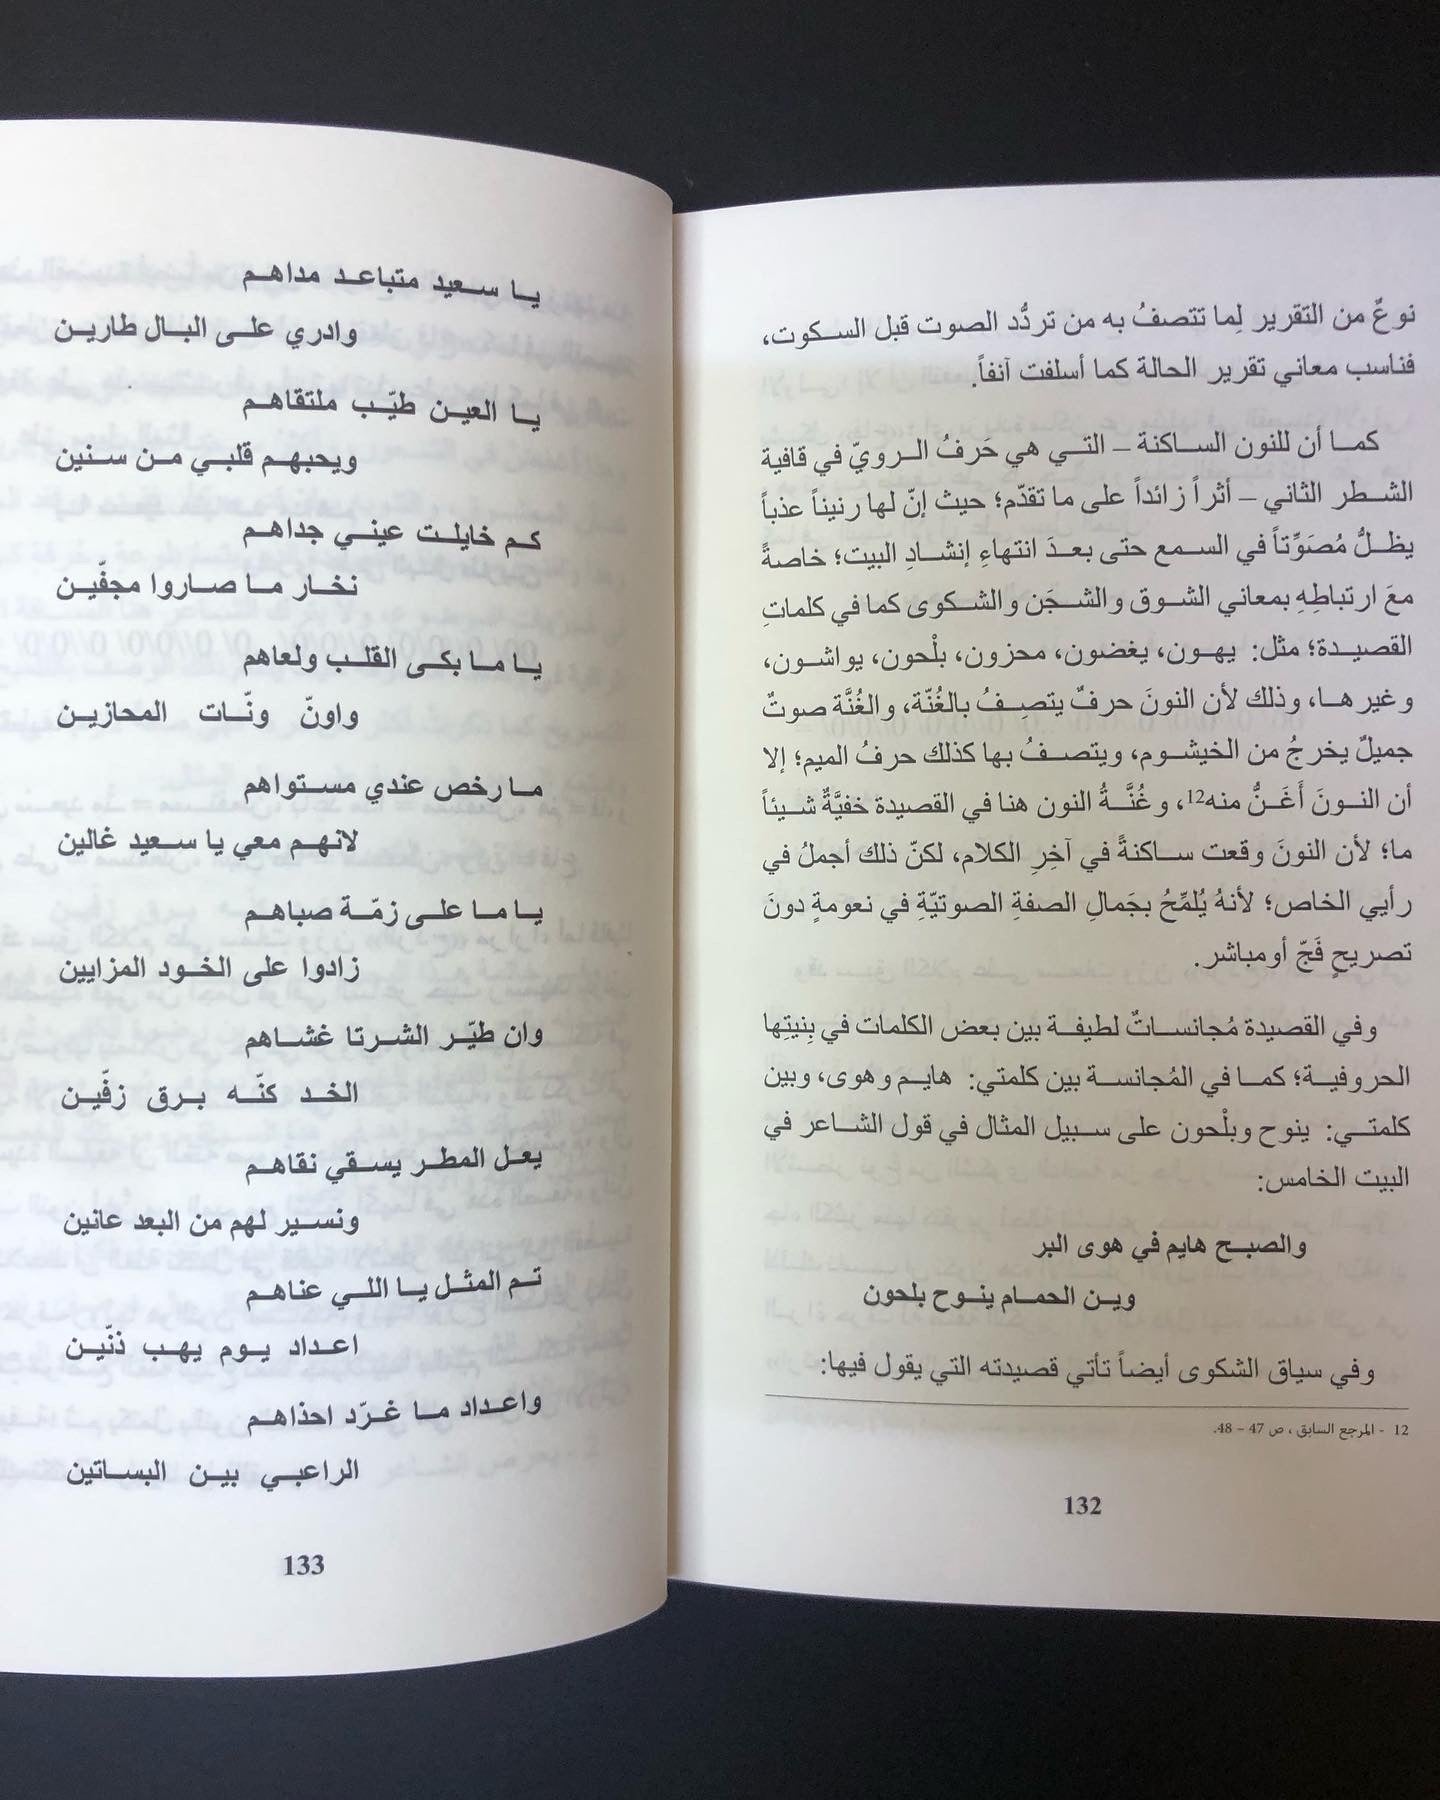 نوعٌ من التقرير لِما تتصفُ به من تردُّد الصوت قبل السكوت،
فناسب معاني تقرير الحالة كما أسلفت آنفاً.
كما أن للنون الساكنة – التي هي حَرفُ الرويّ في قافية
الشطر الثاني – أثراً زائداً على ما تقدّم؛ حيث إنّ لها رنيناً عذباً
يظلُّ مُصَوِّتاً في السمع حتى بعدَ انتهاءِ إنشادِ البيت؛ خاصةً
معَ ارتباطِهِ بمعاني الشوق والشجَن والشكوى كما في كلماتِ
القصيدة؛ مثل: يهون، يغضون، محزون، بلْحون، يواشون،
وغيرها، وذلك لأن النونَ حرفٌ يتصِفُ بالغُنّة، والغُنَّة صوتٌ
جميلٌ يخرجُ من الخيشوم، ويتصفُ بها كذلك حرفُ الميم؛ إلا
أن النونَ أَغَنُّ منه12، وغُنَّةُ النون هنا في القصيدة خفيَّةٌ شيئاً
ما؛ لأن النونَ وقعت ساكنةً في آخِرِ الكلام، لكنّ ذلك أجملُ في
رأيي الخاص؛ لأنهُ يُلمِّحُ بجَمالِ الصفةِ الصوتيّةِ في نعومةٍ دونَ
تصريحٍ فَجّ أومباشر.
وفي القصيدة مُجانساتٌ لطيفة بين بعض الكلمات في بِنيتِها
الحروفية؛ كما في المُجانسة بين كلمتي: هايم وهوى، وبين
كلمتي: ينوح وبلْحون على سبيل المثال في قول الشاعر في
البيت الخامس:
والصبح هايم في هوى البر
وين الحمام ينوح بلحون
وفي سياق الشكوى أيضاً تأتي قصيدته التي يقول فيها:
12 - المرجع السابق، ص 47 – 48.
132
يا سعيد متباعد مداهم
وادري على البال طارين
يا العين طيّب ملتقاهم
ويحبهم قلبي من سنين
كم خايلت عيني جداهم
نخار ما صاروا مجفّين
يا ما بكى القلب ولعاهم
واونّ ونّات المحازين
ما رخص عندي مستواهم
لانهم معي يا سعيد غالين
يا ما على زمّة صباهم
زادوا على الخود المزايين
وان طيّر الشرتا غشاهم
الخد كنّه برق زفّين
يعل المطر يسقي نقاهم
ونسير لهم من البعد عانين
تم المثل يا اللي عناهم
اعداد يوم يهب ذنّين
واعداد ما غرّد احذاهم
الراعبي بين البساتين
133